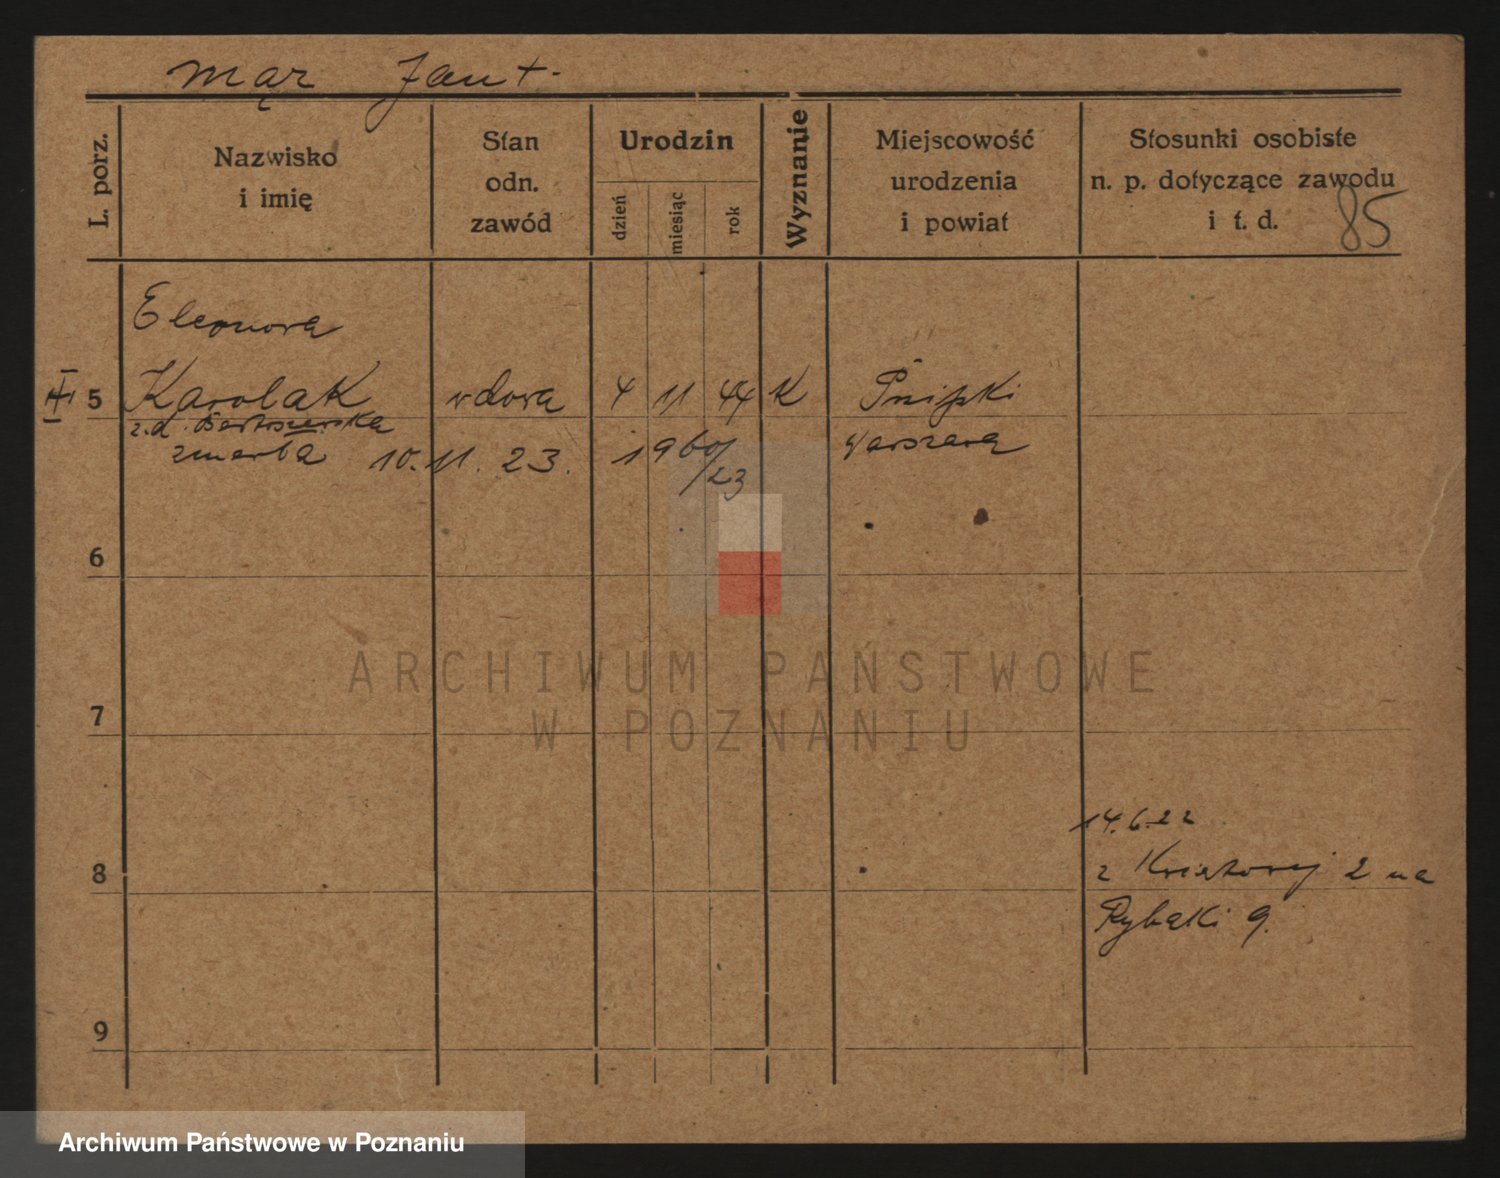 mąż Jan +
L. porz.
Nazwisko
i imię
Stan
odn.
zawód
Urodzin
dzień
miesiąc
rok
Wyznanie
Miejscowość
urodzenia
i powiat
Stosunki osobiste
n. p. dotyczące zawodu
i t. d.
85
Eleonora
5 Karolak wdowa 4 11 44 K
z.d.
zmarła 10.11.23. 1960/23 Warszawa
6
7
8
14.6.22
z Kwiatowej 2 na
Rybaki 9.
9
ARCHIWUM PAŃSTWOWE
W POZNANIU
Archiwum Państwowe w Poznaniu